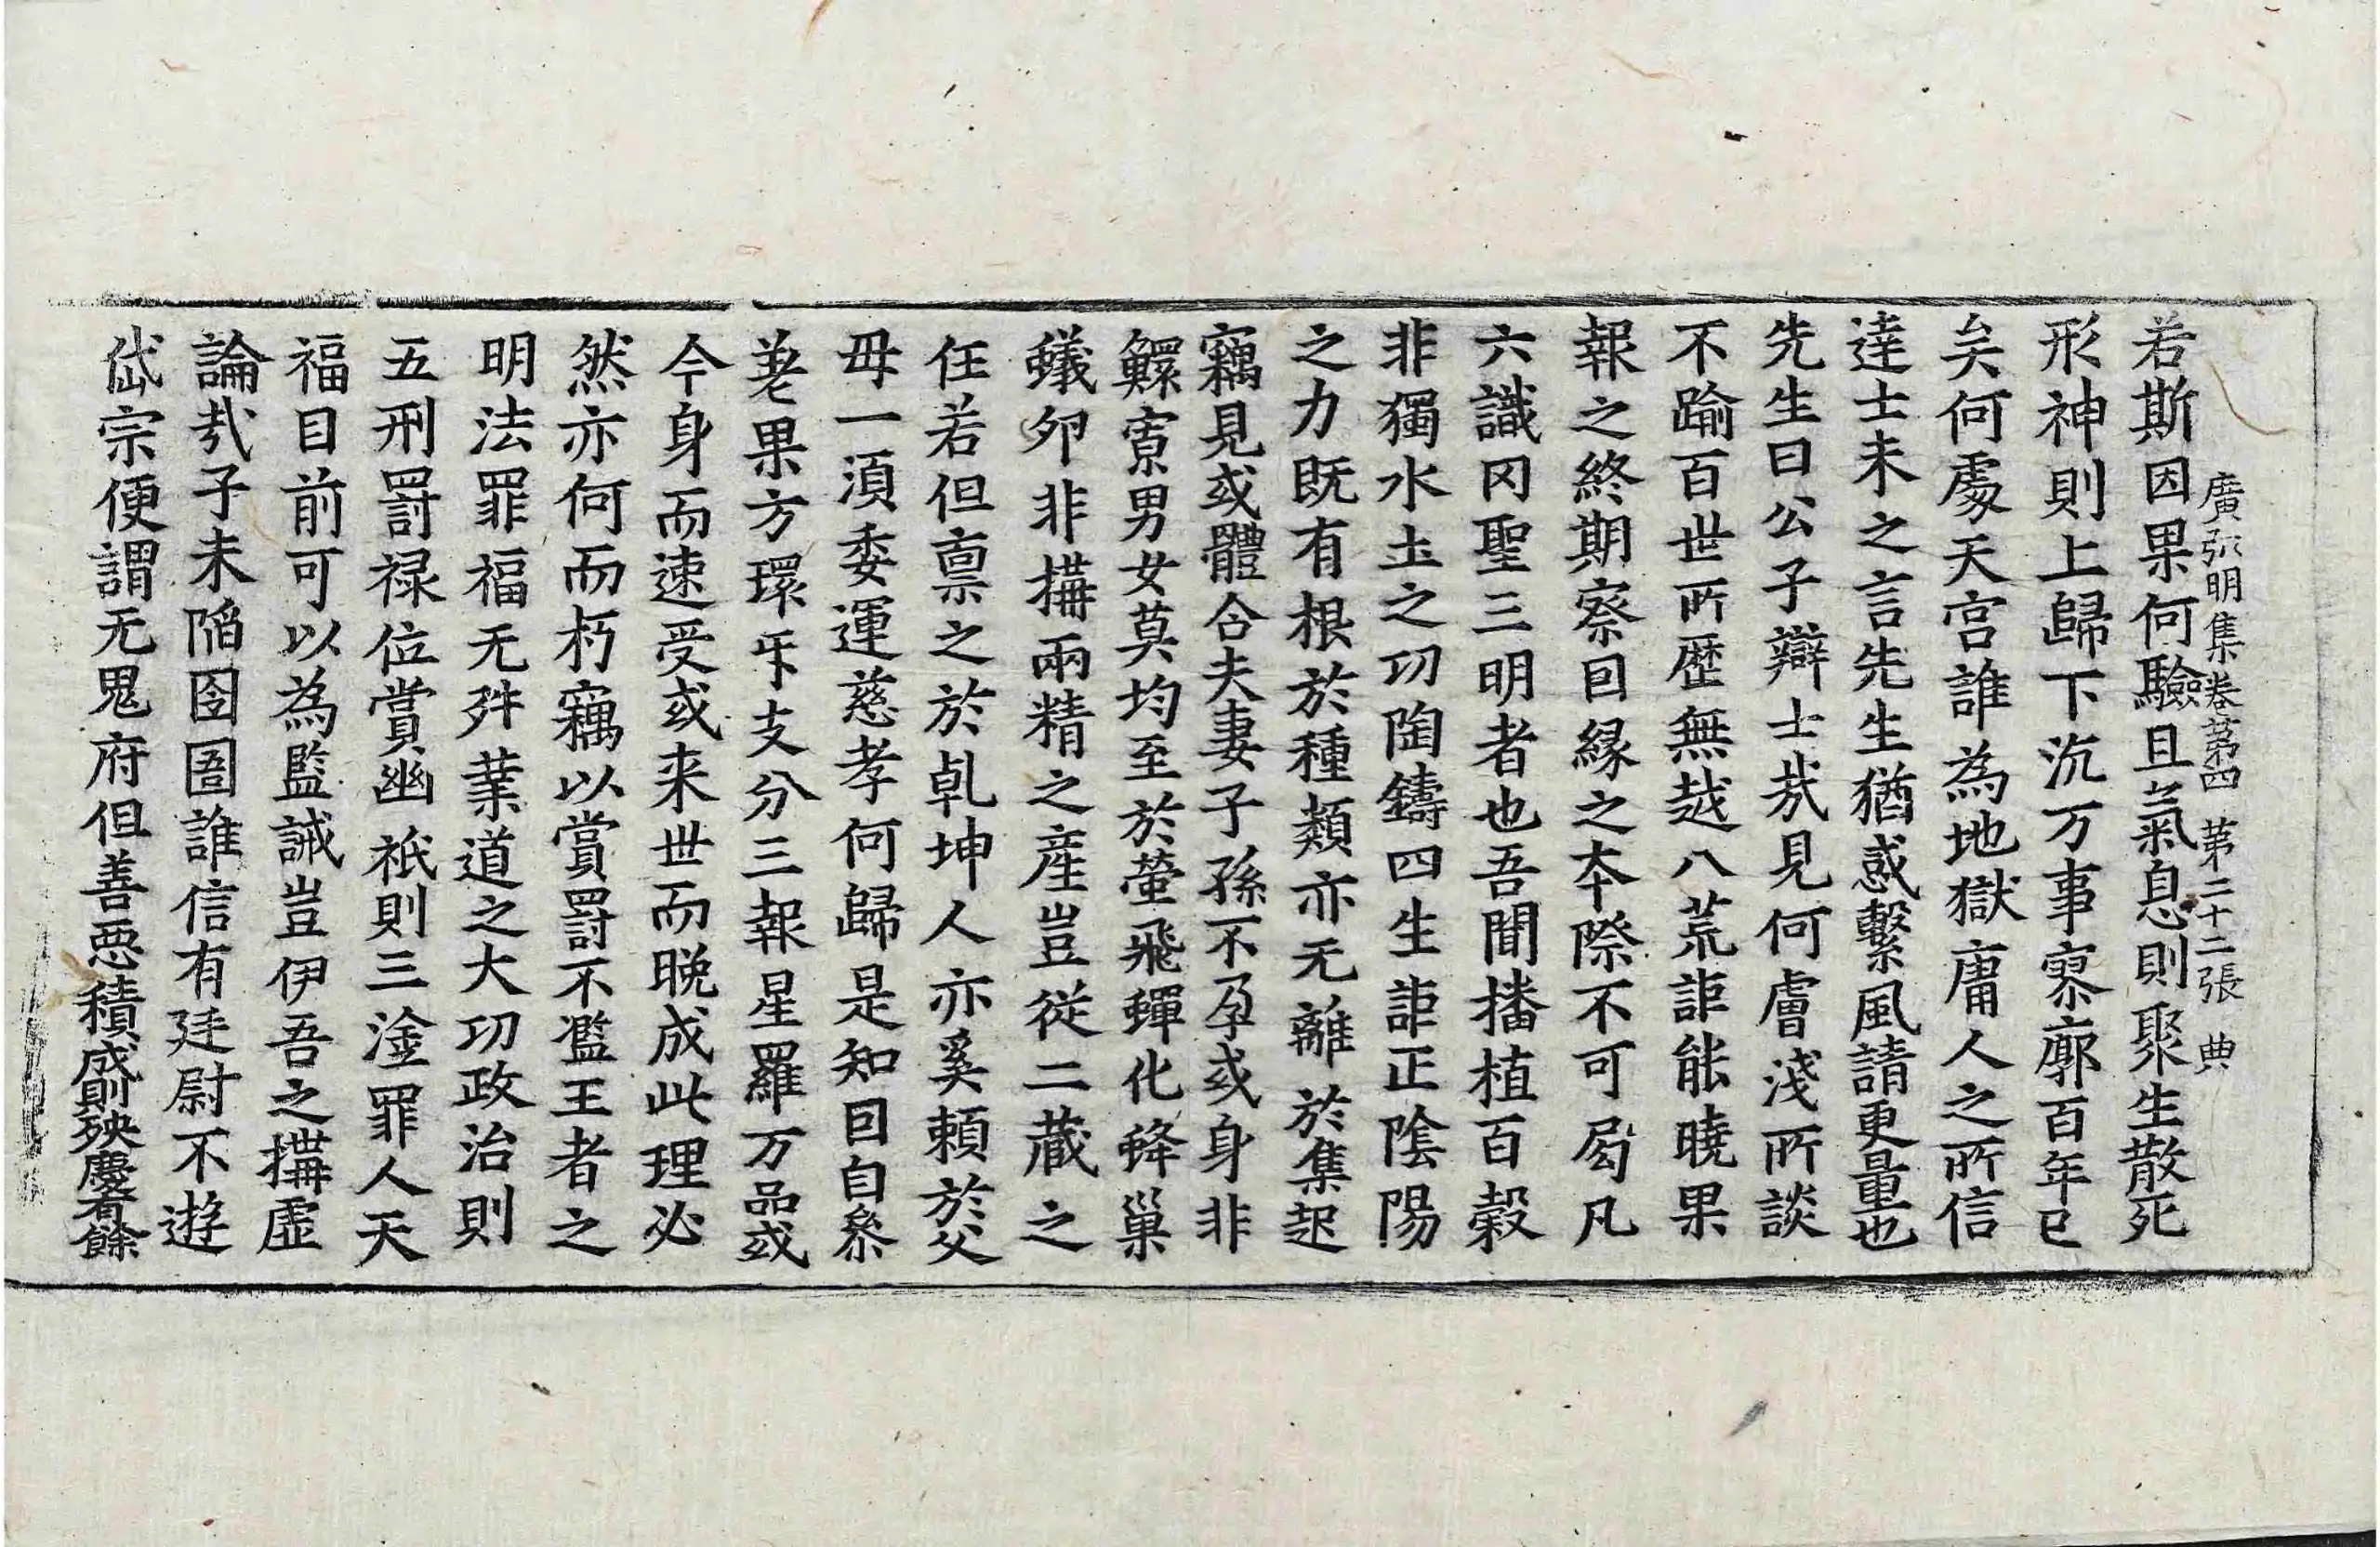 廣弘明集卷苐四　第二十二張　典
若斯因果何驗且氣息則聚生散死
形神則上歸下沉万事寥廓百年已
矣何處天宮誰為地獄庸人之所信
達士未之言先生猶惑繫風請更量也
先生曰公子辯士㦲見何膚淺所談
不踰百世所歷無越八荒詎能曉果
報之終期察囙緣之本際不可局凡
六識冈聖三明者也吾聞播植百穀
非獨水土之功陶鑄四生詎正陰陽
之力既有根於種類亦无離於集起
竊見或體合夫妻子孫不孕或身非
鰥寡男女莫均至於螢飛蟬化蜂巢
蟻卵非搆兩精之産豈從二藏之
任若但禀之於乹坤人亦奚頼於父
母一須委運慈孝何歸是知囙自參
差果方環㸦支分三報星羅万品或
今身而速受或来世而晚成此理必
然亦何而朽竊以賞罰不濫王者之
明法罪福无舛業道之大功政治則
五刑罰禄位賞幽祇則三塗罪人天
福目前可以為監誡豈伊吾之搆虛
論㢤子未陷囹圄誰信有廷尉不遊
岱宗便謂无鬼府但善惡積成則殃慶有餘